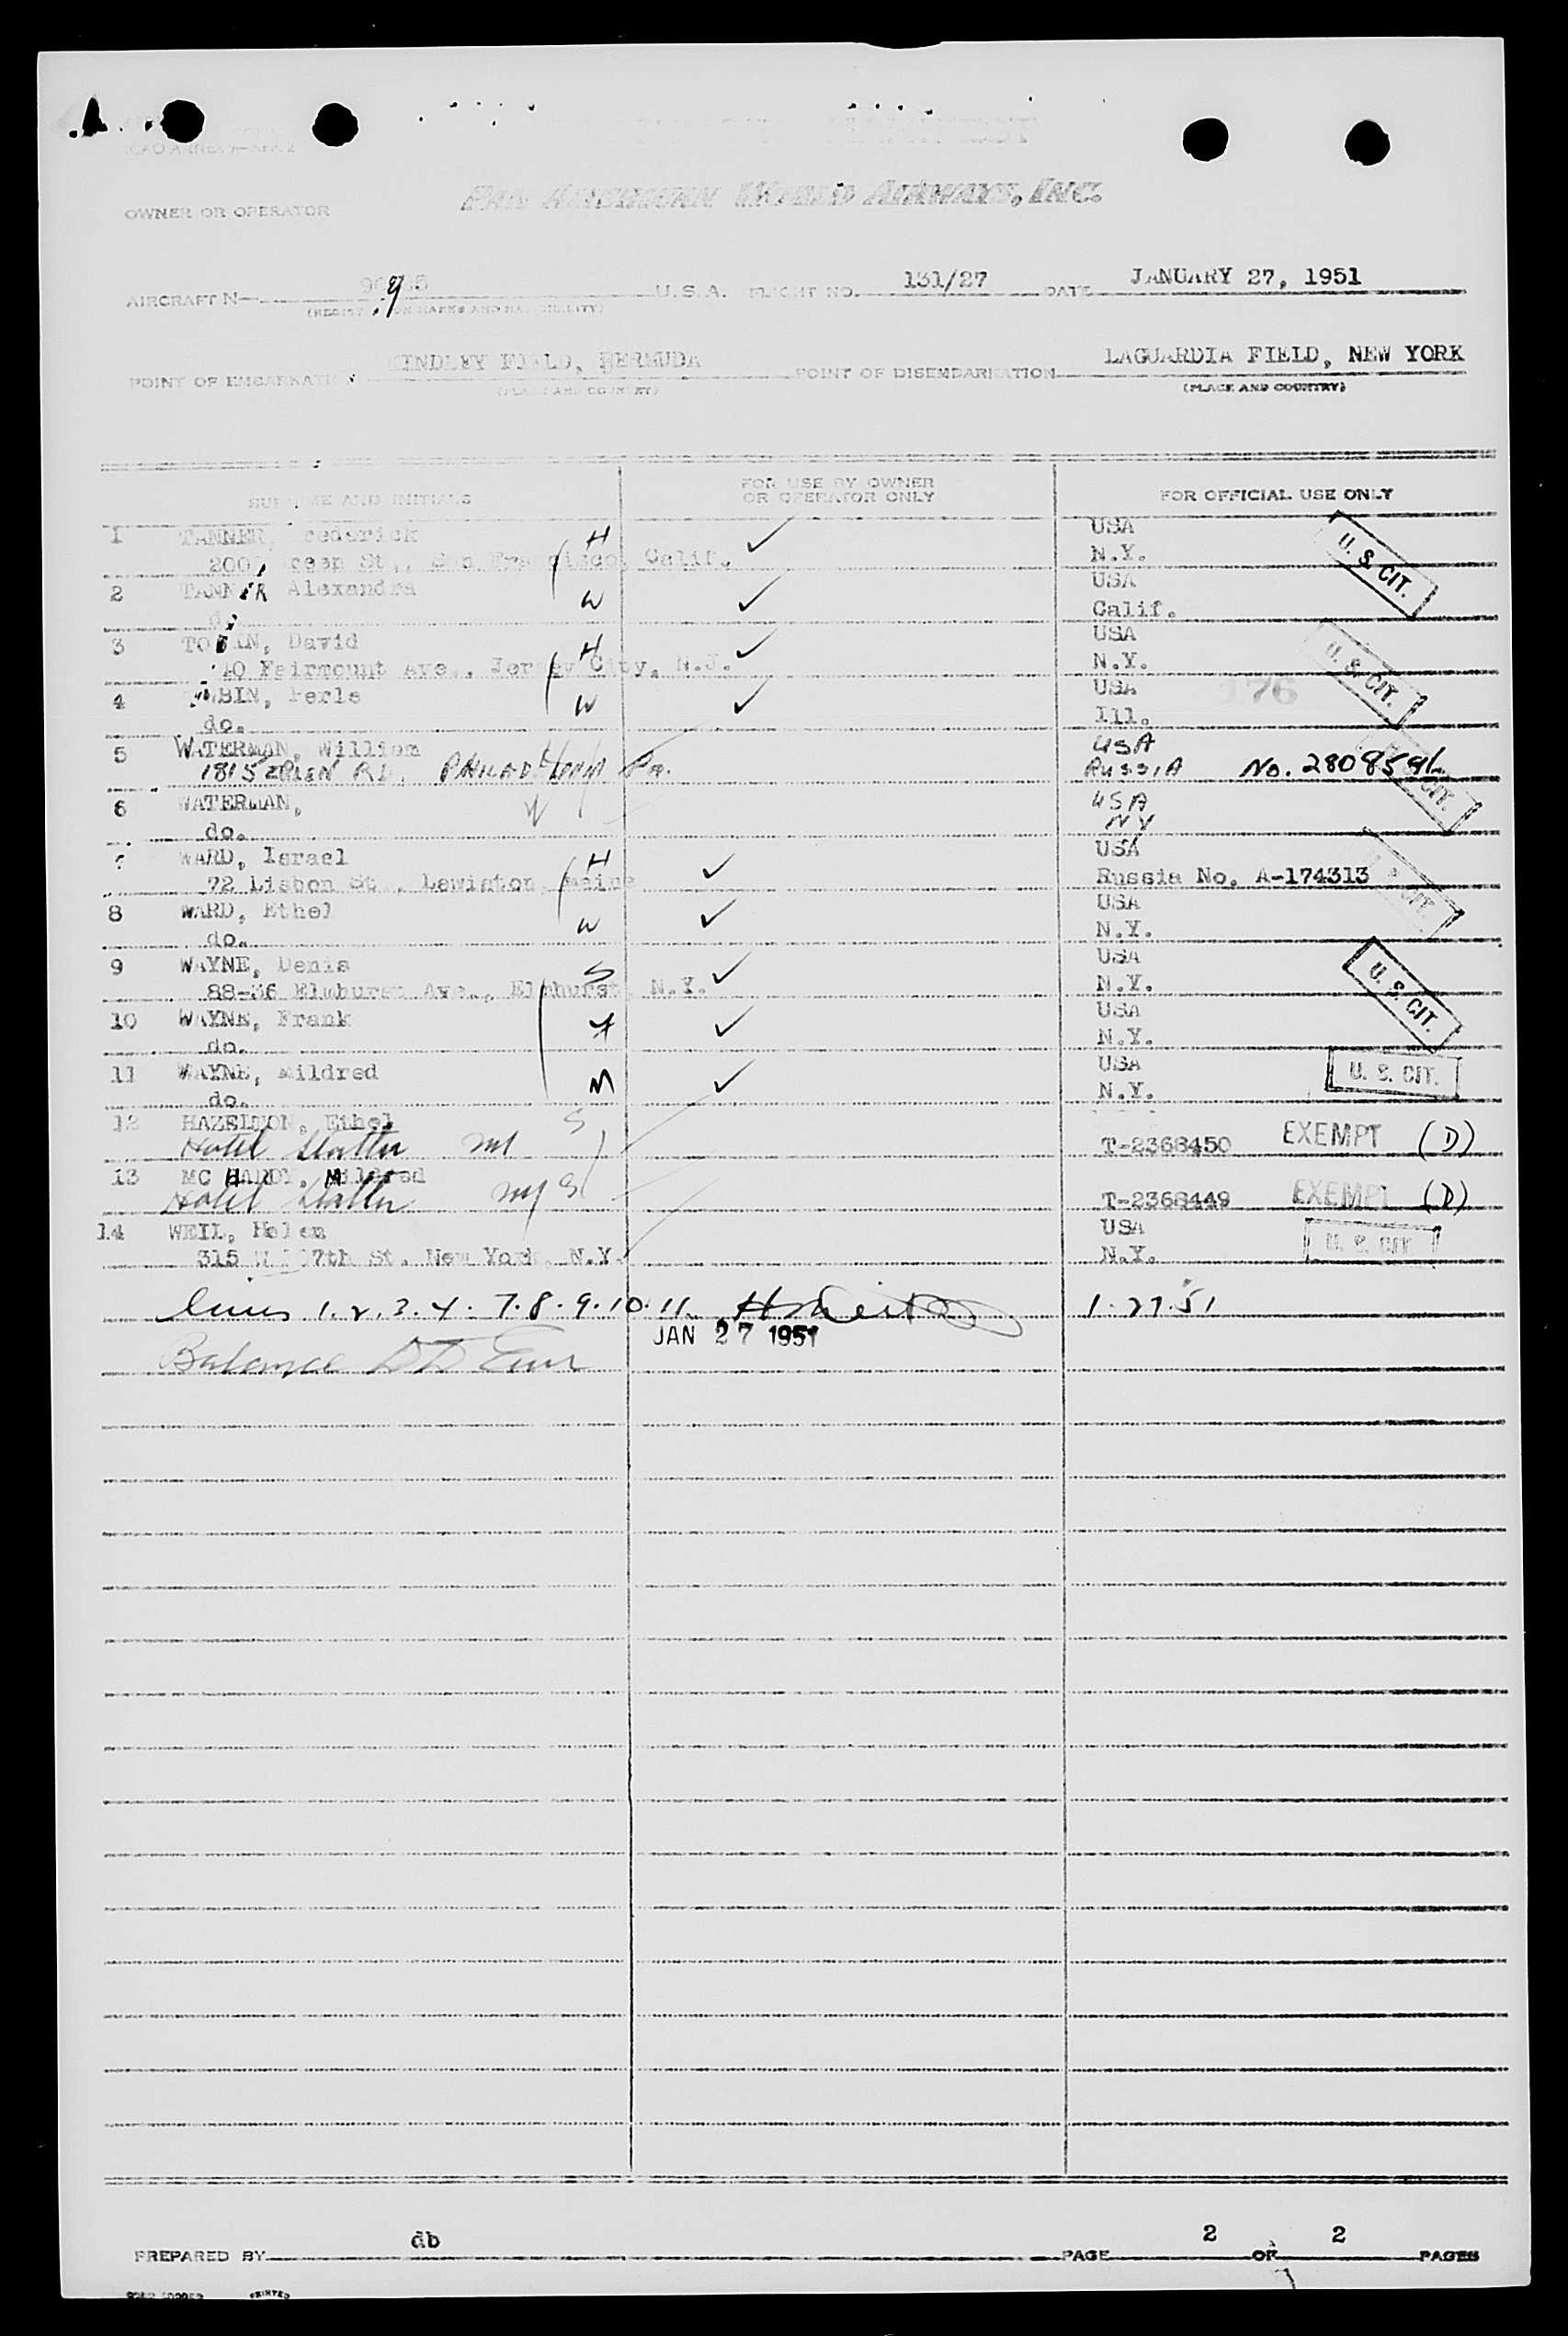 ICAO ANNEX 9-APP. 2
OWNER OR OPERATOR PAN AMERICAN WORLD AIRWAYS, INC.
AIRCRAFT N— U.S.A. FLIGHT NO. 131/27 DATE JANUARY 27, 1951
(REGIST ON MARKS AND NATIONALITY)
POINT OF EMBARKATION KINDLEY FIELD, BERMUDA POINT OF DISEMBARKATION LAGUARDIA FIELD, NEW YORK
(PLACE AND COUNTRY) (PLACE AND COUNTRY)
SURNAME AND INITIALS FOR USE BY OWNER OR OPERATOR ONLY FOR OFFICIAL USE ONLY
1 TANNER, Frederick H ✓ USA
St., San Francisco, Calif. N.Y. U. S. CIT.
2 TANNER Alexandra W ✓ USA
Calif.
3 David H ✓ USA
40 Fairmount Ave., Jersey City, N.J. N.Y. U. S. CIT.
4 Perle W ✓ USA 176
do. Ill.
5 WATERMAN, William USA
PHILADELPHIA Pa. RUSSIA No. CIT.
6 WATERMAN, W USA
do. NY
WARD, Israel H ✓ USA
72 Lisbon St., Lewiston, Maine Russia No. A-174313 CIT.
8 WARD, Ethel W ✓ USA
do. N.Y.
9 WAYNE, Denis S ✓ USA
88-36 Elmhurst Ave., Elmhurst, N.Y. N.Y. U. S. CIT.
10 WAYNE, Frank ✓ USA
do. N.Y.
11 WAYNE, Mildred M ✓ USA U. S. CIT.
do. N.Y.
12 Ethel S
Hotel Statler T-2368450 EXEMPT (D)
13 MC HARDY, Mildred S
Hotel Statler NY T-2368449 EXEMPT (D)
14 WEIL, Helen USA U. S. CIT.
315 7th St. New York, N.Y. N.Y.
Lines 1.2.3.4. 7.8.9.10.11 1.27.51
JAN 27 1951
Balance
PREPARED BY db PAGE 2 OF 2 PAGES
PRINTED